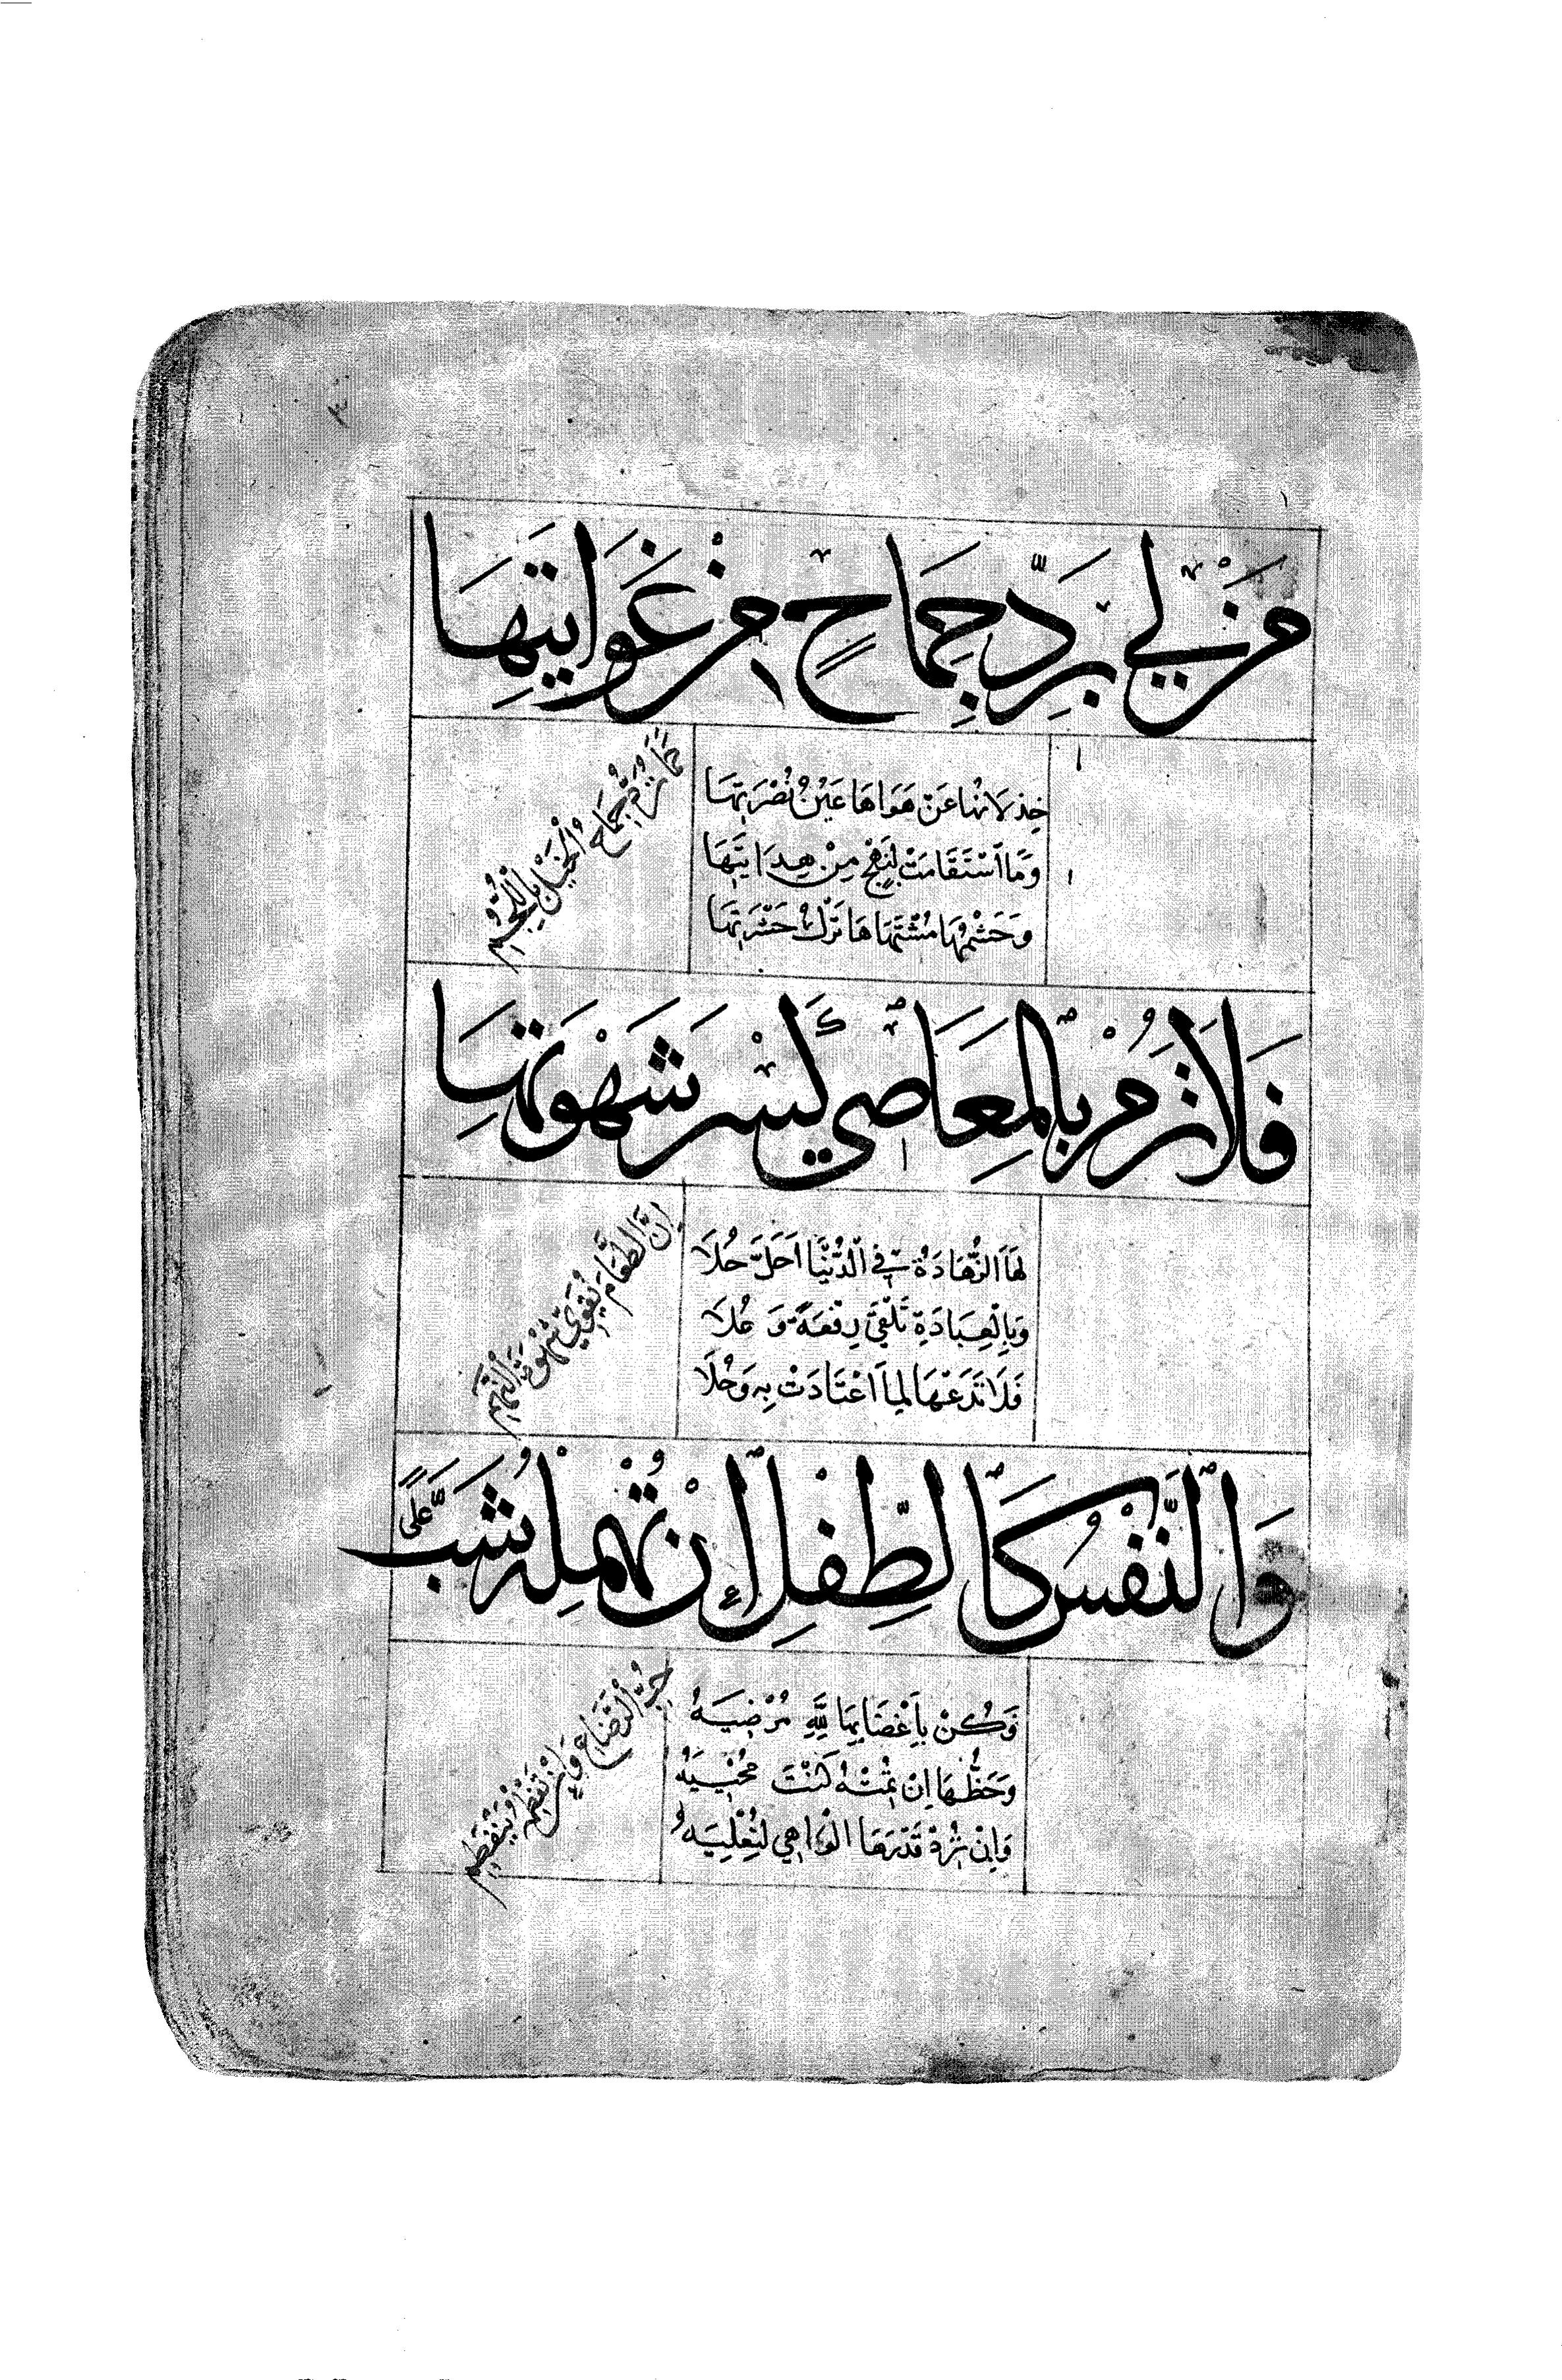 مَنْ لِي بِرَدِّ جِمَاحٍ مِنْ غَوَايَتِهَا
خِذْلَانُهَا عَنْ هَوَاهَا عَيْنُ نُصْرَتِهَا
وَمَا اسْتَقَامَتْ لِنَهْجٍ مِنْ هِدَايَتِهَا
وَحَشْمُهَا مُشْتَهَاهَا تَرْكُ حَشْرَتِهَا
كَمَا يُرَدُّ جِمَاحُ الْخَيْلِ بِاللُّجُمِ
فَلَا تَرُمْ بِالْمَعَاصِي كَسْرَ شَهْوَتِهَا
لَهَا الزَّهَادَةُ فِي الدُّنْيَا اَحَلَّ حُلَا
وَبِالْعِبَادَةِ تَلْقَى رِفْعَةً وَعُلَا
فَلَا تَدَعْهَا لِمَا اعْتَادَتْ بِهِ وَحَلَا
اِنَّ الطَّعَامَ يُقَوِّي شَهْوَةَ النَّهِمِ
وَالنَّفْسُ كَالطِّفْلِ إِنْ تُهْمِلْهُ شَبَّ عَلَى
حُبِّ الرَّضَاعِ وَإِنْ تَفْطِمْهُ يَنْفَطِمِ
وَكُنْ بِإِغْضَابِهَا لِلَّهِ مُرْضِيَهُ
وَحَظُّهَا اِنْ تُمِتْهُ كُنْتَ مُحْيِيَهُ
وَاِنْ تُرِدْ قَدْرَهَا الْوَاهِي لِتُعْلِيَهُ